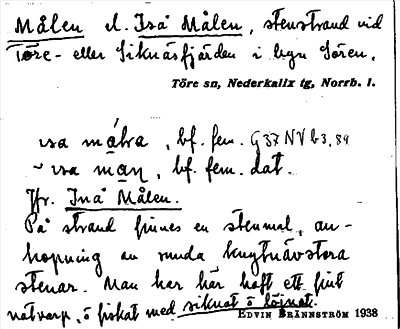 Målen el. Iså Målen, stenstrand vid
Töre- eller Siknäsfjärden i byn Sören.
Töre sn, Nederkalix tg, Norrb. l.
ısa , bf. fem. G 37 NV b 3, 84
~ ısa , bf. fem. dat.
Jfr. Inå Målen.
På strand finnes en stenmal, an-
hopning av runda knytnävstora
stenar. Man har här haft ett fint
notvarp, ö fiskat med siknot ö löjnot.
EDVIN BRÄNNSTRÖM 1938